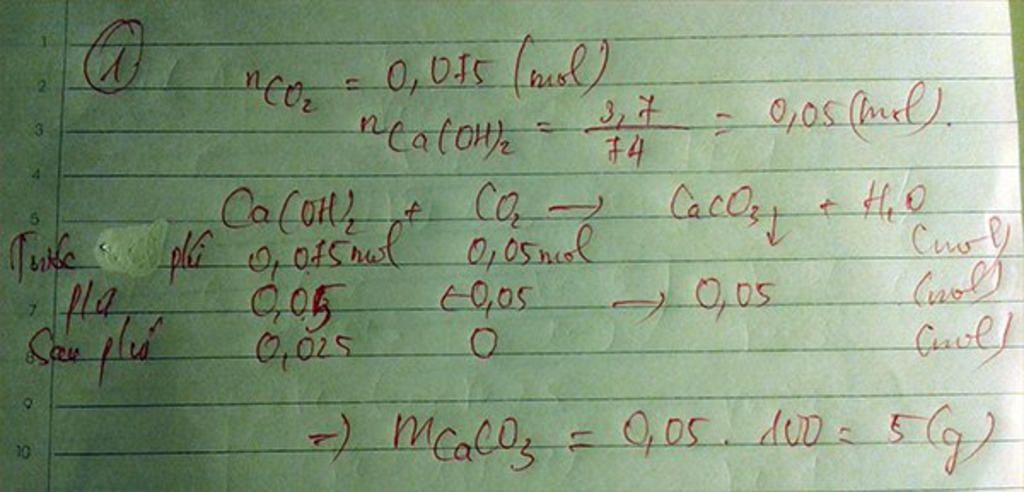 1
nCO2 = 0,075 (mol)
nCa(OH)2 = 3,7 / 74 = 0,05 (mol).
Ca(OH)2 + CO2 → CaCO3↓ + H2O
Trước pứ 0,075mol 0,05mol (mol)
pứ 0,05 ←0,05 → 0,05 (mol)
Sau pứ 0,025 0 (mol)
=) mCaCO3 = 0,05 . 100 = 5 (g)